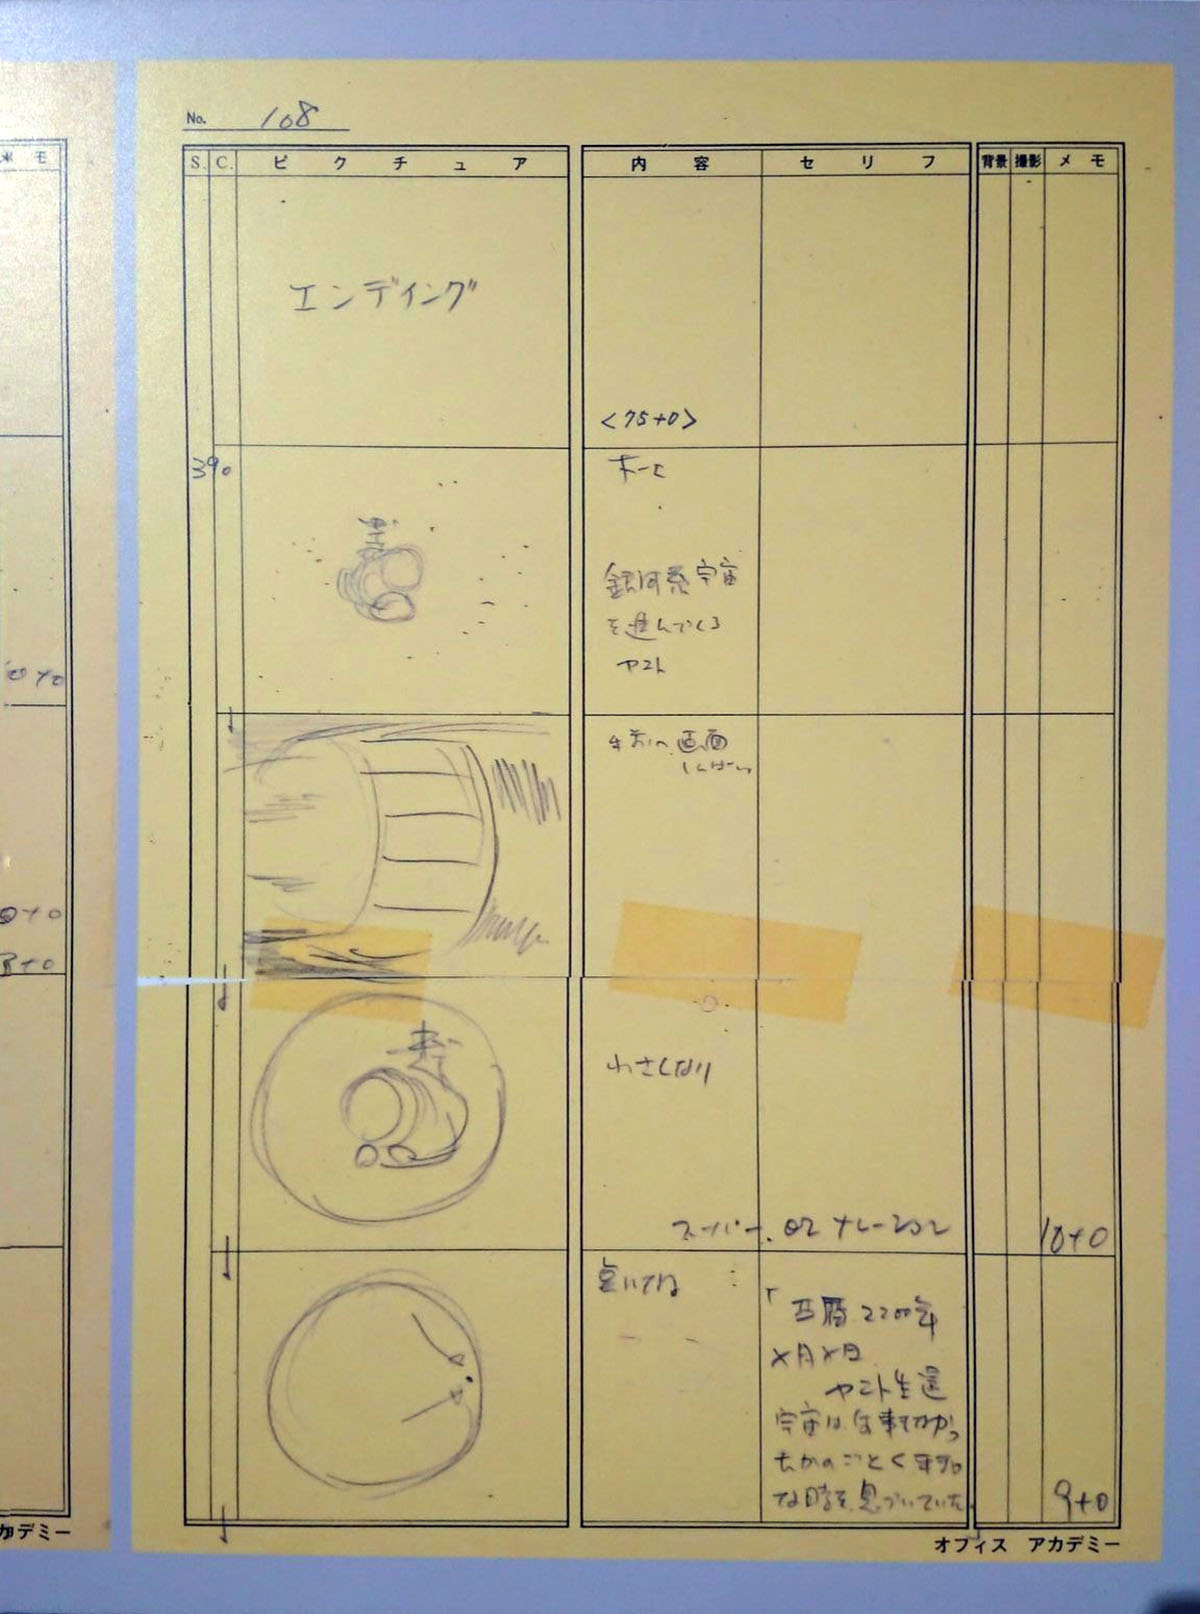 No. 108
S. C. ピクチュア 内容 セリフ 背景 撮影 メモ
エンディング
<75+0>
390
銀河系宇宙
を進んでくる
ヤマト
手前へ画面
いっぱい
小さくなり
スーパー. OR ナレーション
10+0
「西暦2200年
×月×日
ヤマト生還
宇宙は何事もなかっ
たかのごとく平和
な時を息づいていた
9+0
オフィス アカデミー
メモ
0+0
0+0
8+0
カデミー